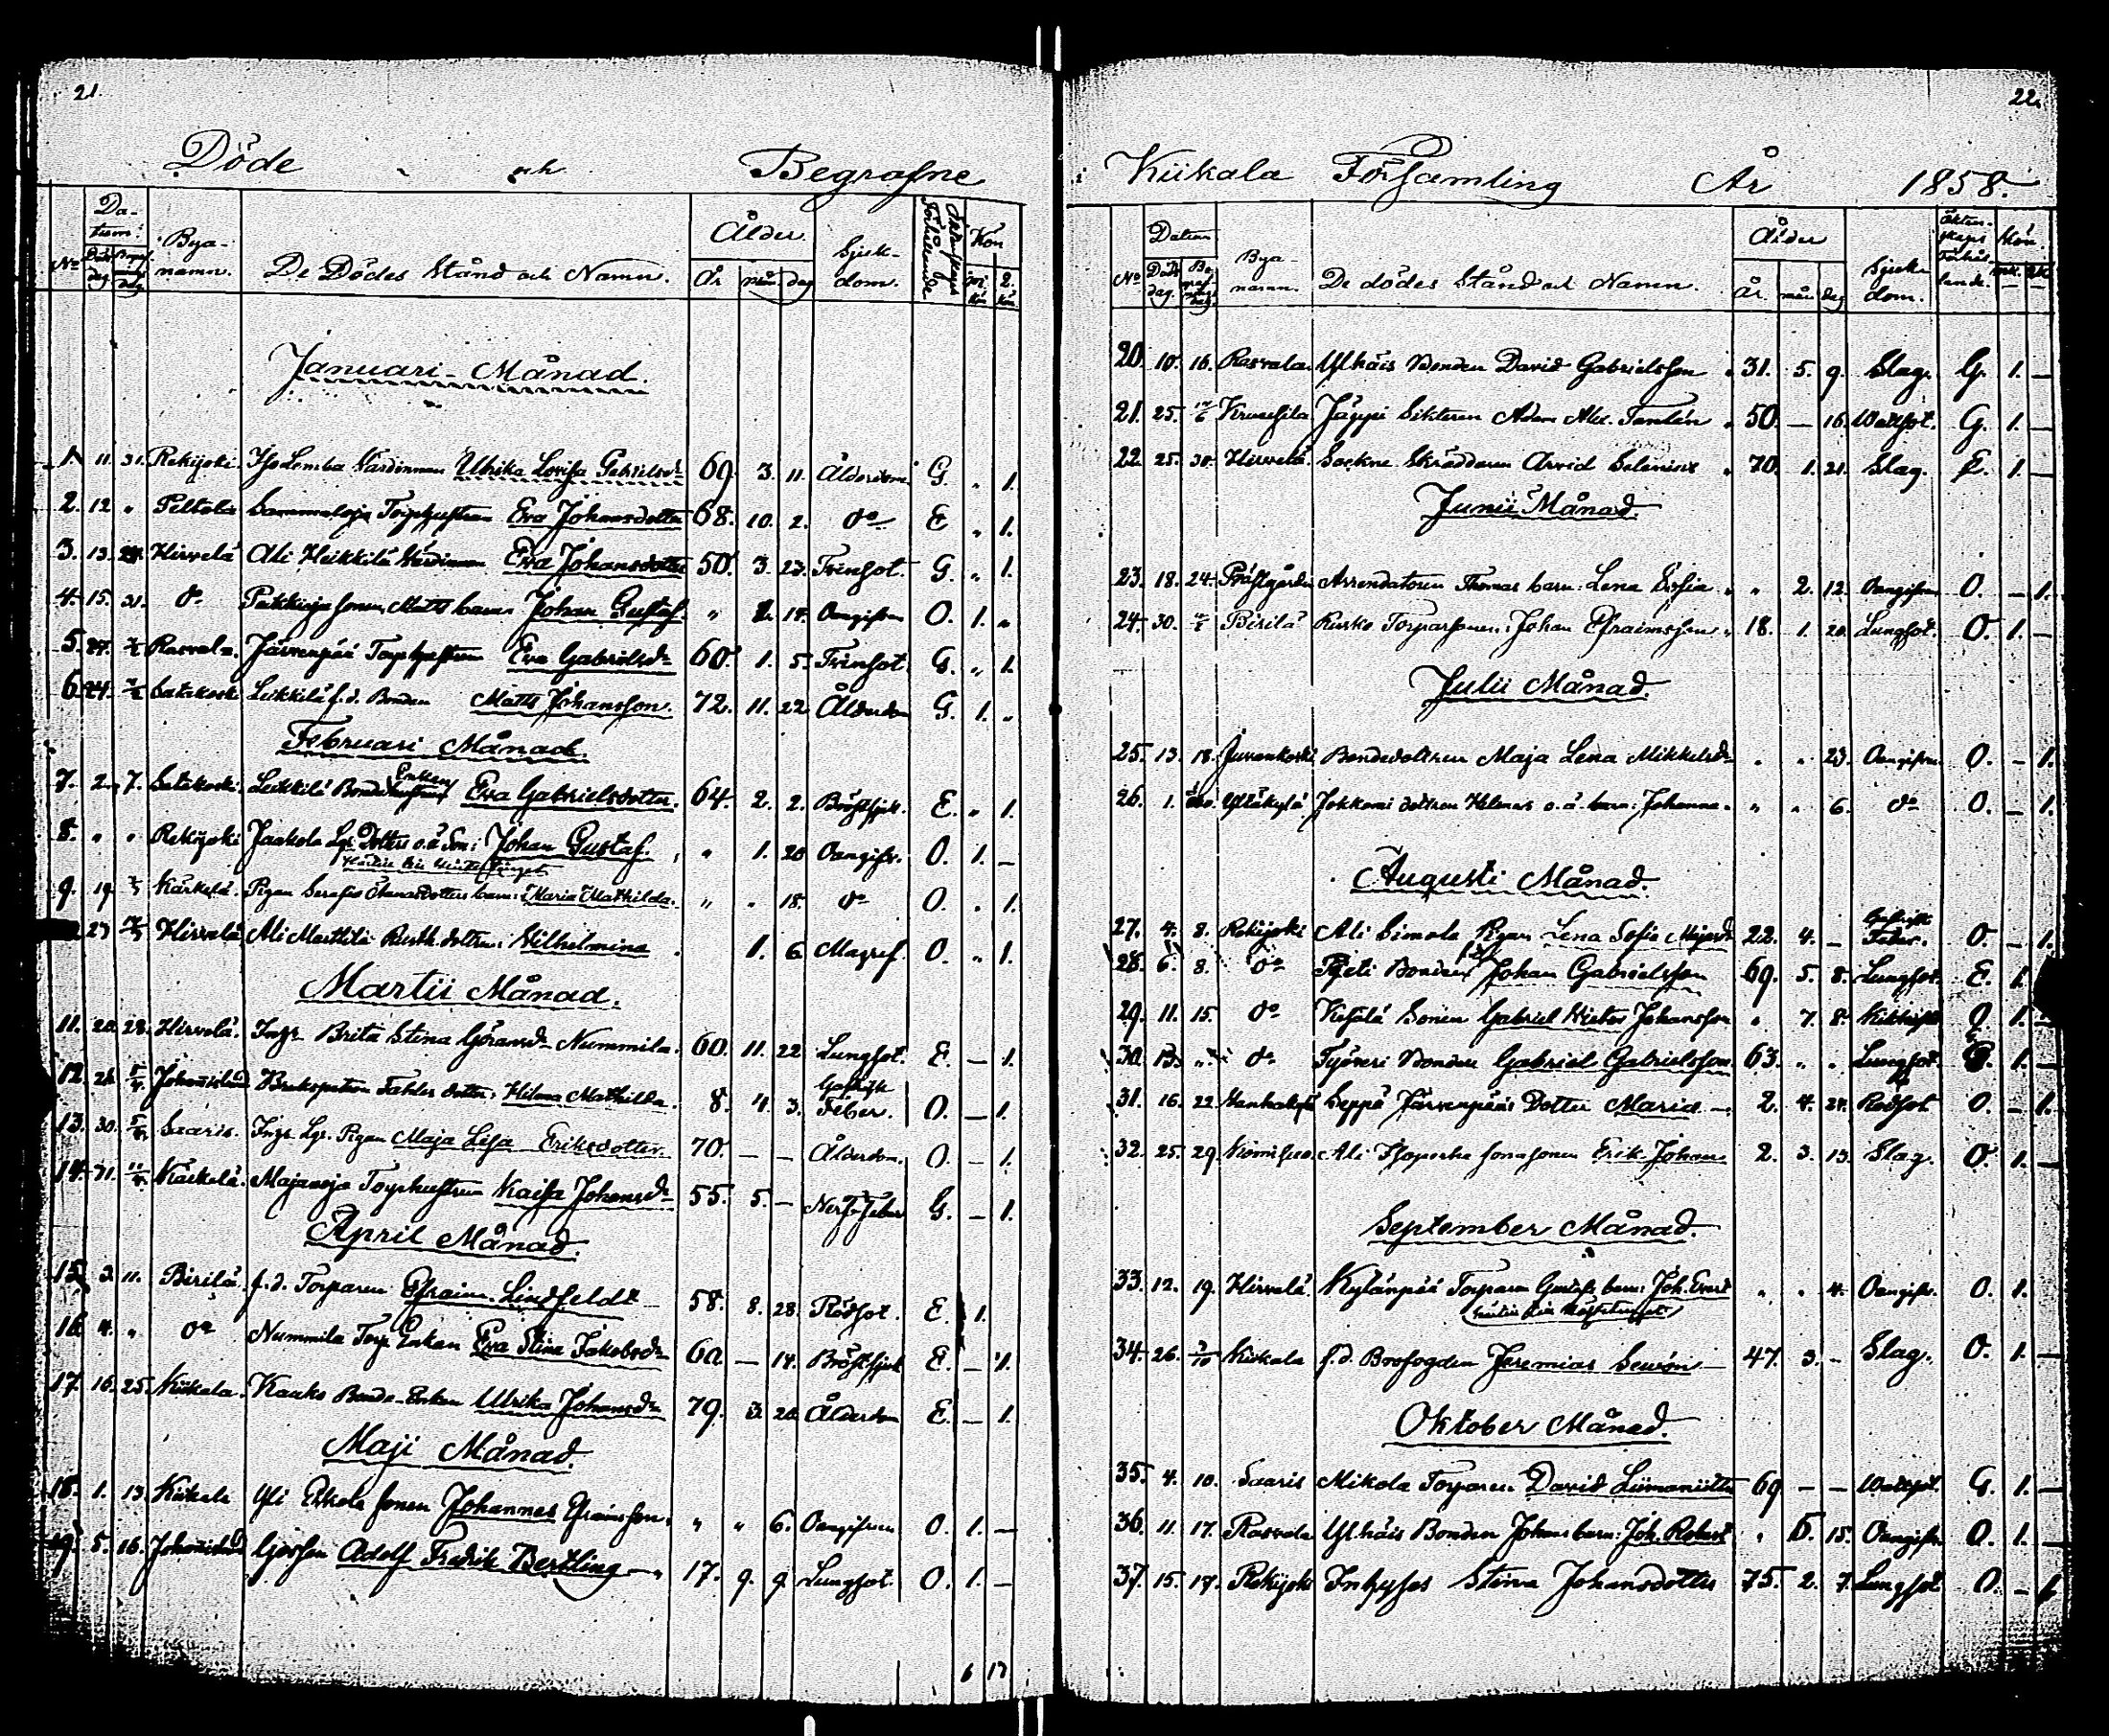 21.
Döde och Begrafne
No Datum: Döds dag Begrafnings dag Bya-namn. De Dödes Stånd och Namn. Ålder. År mån. dag Sjuk-dom. Äktenskaps Förhållande Kön m. kön q. kön
Januari Månad.
1. 11. 31. Rekijoki. Iso Lemba Värdinnan Ulrika Lovisa Gabrielsdr 69. 3. 11. Ålderdom. G. " 1.
2. 12. " Peltola Sammaloja Torphustrun Eva Johansdotter 68. 10. 2. do E " 1.
3. 13. 24. Hirvelä Ali Heikkilä Värdinnan Eva Johansdotter 50. 3. 23. Tvinsot. G. " 1.
4. 15. 31. do sonen Matts barn Johan Gustaf. " 2. 14. Oangifven O. 1. "
5. 27. Rasvala. Järvenpää Torphustrun Eva Gabrielsdr 60. 1. 5. Tvinsot G. " 1.
6. 24. Satakoski Leikkilä f.d. Bonden Matts Johansson. 72. 11. 22 Ålderdom G. 1. "
Februari Månad.
7. 2. 7. Satakoski. Leikkilä Bonde Enkan Eva Gabrielsdotter. 64. 2. 2. Bröstsjuk. E. " 1.
8. " " Rekijoki Jaakola Lgs Dotters o.ä. Son: Johan Gustaf. " 1. 20 Oangifv. O. 1. –
9. 19. Kärkelä. Pigan Serafia dotters barn: Maria Mathilda. " . 18. do O. . 1.
27 Hirvelä Ali Marttila Rusth. dottren: Vilhelmina . 1. 6 Magref. O. " 1.
Martii Månad.
11. 20. 28. Hirvelä. Inge Brita Stina Göransdr Nummila. 60. 11. 22 Lungsot. E. – 1.
12. 26. 5/4 dotter: Hilma Mathilda. 8. 4. 3. Gastrisk Feber. O. – 1.
13. 30. 5/4 Saaris. Inge Lgs. Pigan Maja Lisa Eriksdotter 70. – – Ålderdom. O. – 1.
14. 31. 11/4 Kärkelä. Majanoja Torphustrun Kaisa Johansdr 55. 5. – Nerf-feber G. – 1.
April Månad.
15. 3. 11. Pirilä f.d. Torparen Efraim Lindfeldt 58. 8. 28. Rödsot. E. 1.
16. 4. " do Nummila Torp Enkan Eva Stina Jakobsdr 60. – 14. Bröstsjuk E. – 1.
17. 16. 25. Kiikala. Kauko Bonde-Enkan Ulrika Johansdr 79. 3 20. Ålderdom E. – 1.
Maji Månad.
18. 1. 13. Kiikala Yli Eskola sonen Johannes Efraimsson. " " 6. Oangifven O. 1. –
19. 5. 16. Gossen Adolf Fredrik Bertling 17. 9. 9 Lungsot. O. 1. –
6 17
22.
i Kiikala Församling År 1858.
No Datum Döds dag. Begrafnings dag Bya-namn. De dödes Stånd och Namn. Ålder år. mån. dag Sjuk-dom. Äktenskaps Förhållande. Kön.
20. 10. 16. Rasvala. Ylhäis Bonden David Gabrielsson 31. 5. 9. Slag. G. 1. –
21. 25. Jäppi Sikteren Adam Alex. Tamlén 50. – 16. Wattsot. G. 1. –
22. 25. 30. Hirvelä. Sockne Skräddaren Arvid Selenius 70. 1. 21. Slag. E. 1. –
Junii Månad
23. 18. 24. Prästgården Arrendatoren Thomas barn: Lena Sofia " 2. 12. Oangifven O. – 1.
24. 30. Pirilä Ruska Torparsonen: Johan Efraimsson 18. 1. 20. Lungsot. O. 1. –
Julii Månad.
25. 13. 18. Juvankoski Bondedottren Maja Lena Mikkelsdr . . 23. Oangifven O. – 1.
26. 1. Yltäkylä Jokkami dottren Helenas o.ä. barn: Johanna. " . 6. do O. – 1.
Augusti Månad.
27. 4. 8. Rekijoki Ali Simola Pigan Lena Sofia 22. 4. – Gastrisk Feber. O. – 1.
28. 6. 8. do Bonden Johan Gabrielsson 69. 5. 8. Lungsot E. 1.
29. 11. 15. do Kesälä Sonen Gabriel Viktor Johansson " 7. 8. Kikhosta O. 1.
30. 13. " do Bonden Gabriel Gabrielsson 63. " . Lungsot 1. –
31. 16. 22 Seppä Järvenpääs Dotter Maria 2. 4. 24. Rödsot O. – 1.
32. 25. 29. Ali Isoperko sonasonen Erik Johan 2. 3. 13. Slag. O. 1. –
September Månad.
33. 12. 19. Hirvelä Kylänpää Torparen Gustafs barn: Joh. Evert . . 4. Oangifv. O. 1.
34. 26. 3/10 Kiikala f.d. Brofogden Jeremias Sewón 47. 3. – Slag. O. 1. –
Oktober Månad.
35. 4. 10. Saaris Mikola Torparen David Liimanióttn 69 – – Wattsot. G. 1. –
36. 11. 17. Rasvala Ylhäis Bonden Johans barn: Joh. Robert . 5. 15. Oangifv. O. 1. –
37. 15. 17. Rekijoki Inhyses Stina Johansdotter 75. 2. 7. Lungsot O. – 1.